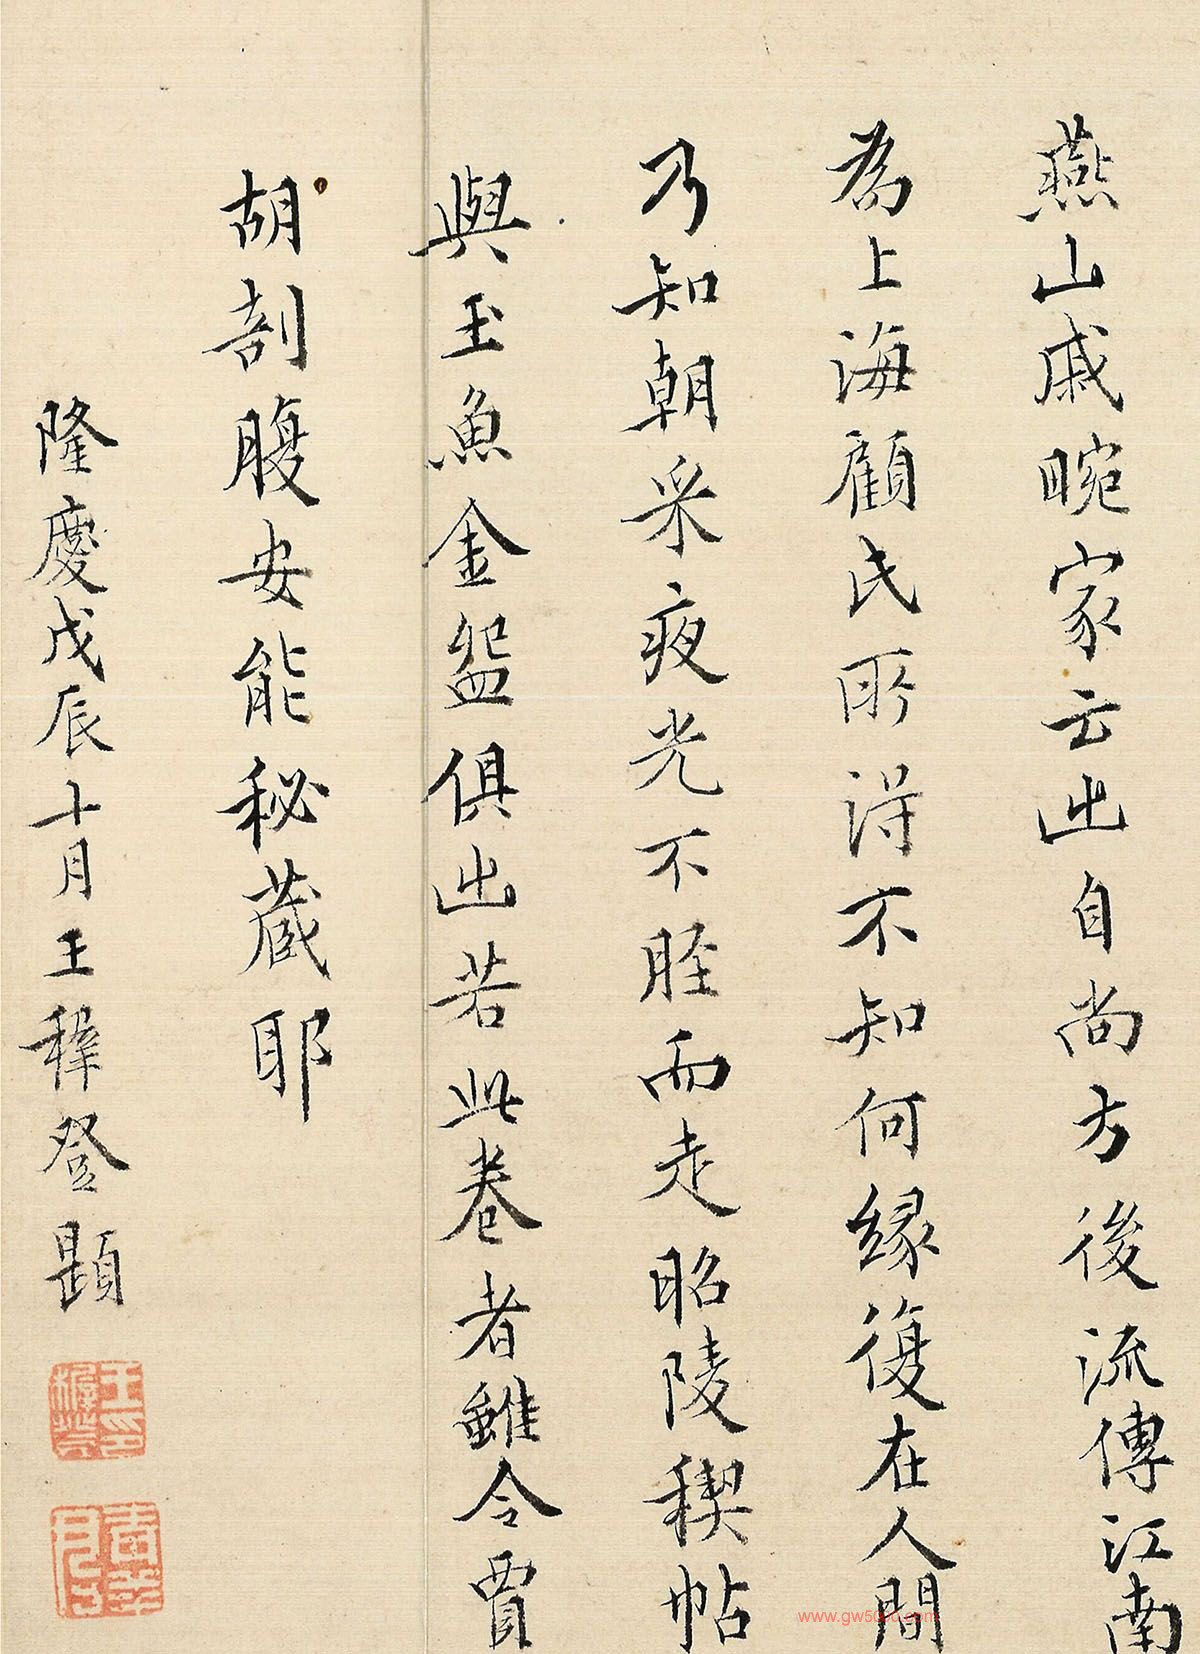 燕山戚畹家云出自尚方後流傳江南
為上海顧氏所得不知何緣復在人間
乃知朝采夜光不脛而走昭陵稧帖
與玉魚金盌俱出若此卷者雖令賈
胡剖腹安能秘藏耶
隆慶戊辰十月王穉登題
王穉登印
www.gw5000.com